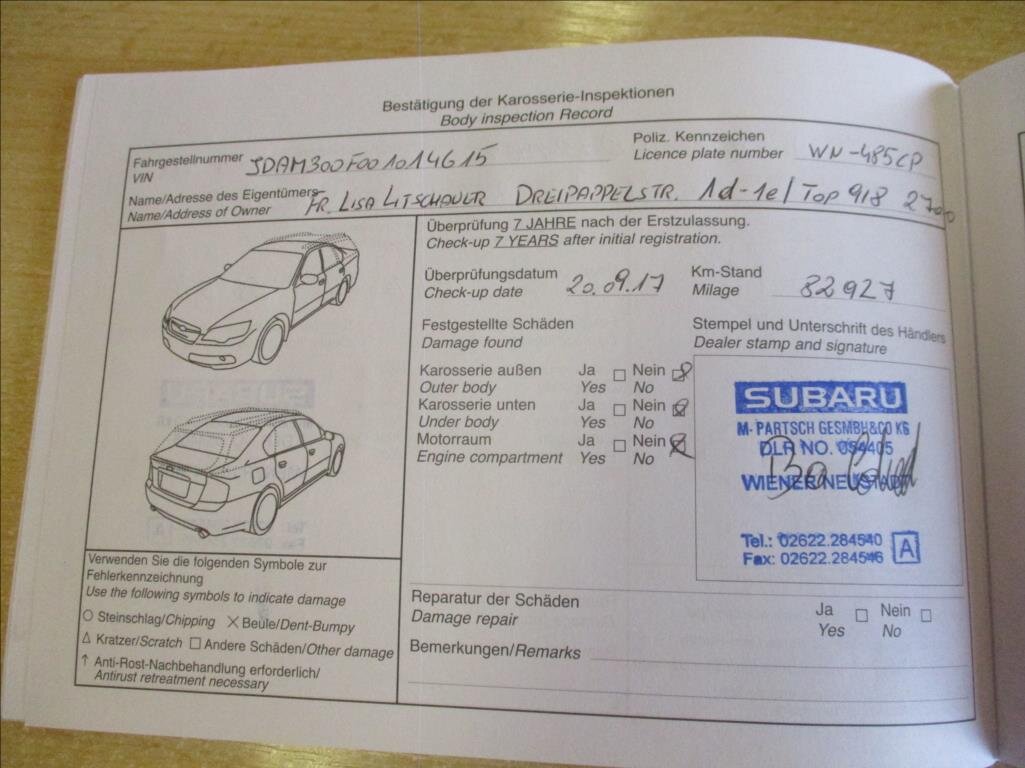 Bestätigung der Karosserie-Inspektionen
Body inspection Record
Fahrgestellnummer JDAM300F001014615
VIN
Poliz. Kennzeichen WN-485CP
Licence plate number
Name/Adresse des Eigentümers FR. LISA LITSCHAUER DREIPAPPELSTR. 1d-1e/TOP 918 2700
Name/Address of Owner
Überprüfung 7 JAHRE nach der Erstzulassung.
Check-up 7 YEARS after initial registration.
Überprüfungsdatum 20.09.17
Check-up date
Km-Stand 82927
Milage
Festgestellte Schäden
Damage found
Karosserie außen Ja Nein
Outer body Yes No
Karosserie unten Ja Nein
Under body Yes No
Motorraum Ja Nein
Engine compartment Yes No
Stempel und Unterschrift des Händlers
Dealer stamp and signature
SUBARU
M. PARTSCH GESMBH&CO KG
DLR NO. 054405
WIENER NEUSTADT
Tel.: 02622.284540
Fax: 02622.284546 A
Verwenden Sie die folgenden Symbole zur
Fehlerkennzeichnung
Use the following symbols to indicate damage
○ Steinschlag/Chipping × Beule/Dent-Bumpy
△ Kratzer/Scratch □ Andere Schäden/Other damage
↑ Anti-Rost-Nachbehandlung erforderlich/
Antirust retreatment necessary
Reparatur der Schäden Ja Nein
Damage repair Yes No
Bemerkungen/Remarks